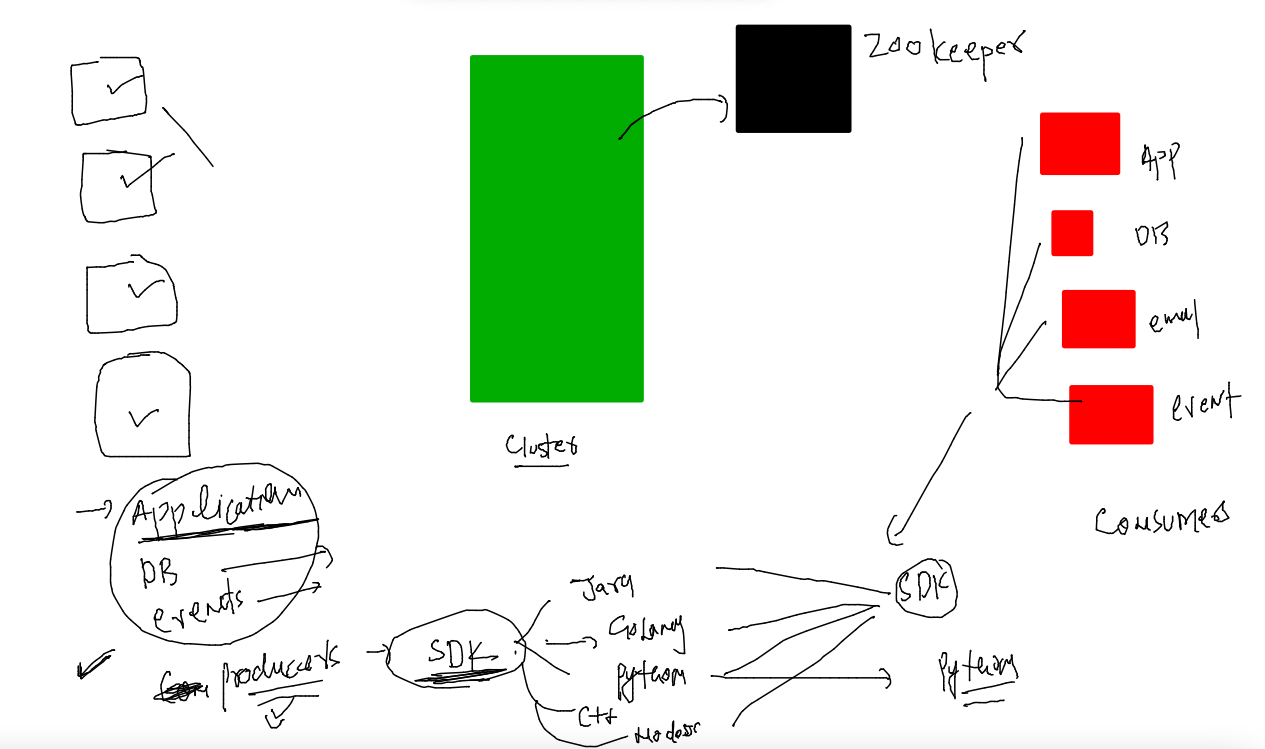 Zookeeper
APP
DB
email
event
Cluster
Consumers
Application
DB
events
producers
SDK
Java
Golang
Python
C++
Nodejs
SDK
Python